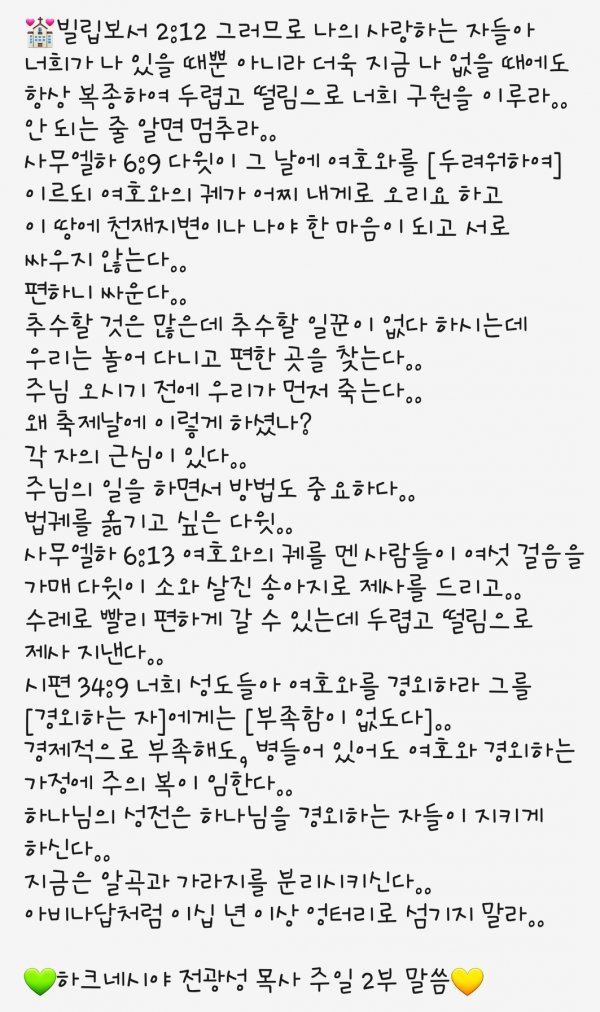 💒빌립보서 2:12 그러므로 나의 사랑하는 자들아
너희가 나 있을 때뿐 아니라 더욱 지금 나 없을 때에도
항상 복종하여 두렵고 떨림으로 너희 구원을 이루라..
안 되는 줄 알면 멈추라..
사무엘하 6:9 다윗이 그 날에 여호와를 [두려워하여]
이르되 여호와의 궤가 어찌 내게로 오리요 하고
이 땅에 천재지변이나 나야 한 마음이 되고 서로
싸우지 않는다..
편하니 싸운다..
추수할 것은 많은데 추수할 일꾼이 없다 하시는데
우리는 놀어 다니고 편한 곳을 찾는다..
주님 오시기 전에 우리가 먼저 죽는다..
왜 축제날에 이렇게 하셨나?
각 자의 근심이 있다..
주님의 일을 하면서 방법도 중요하다..
법궤를 옮기고 싶은 다윗..
사무엘하 6:13 여호와의 궤를 멘 사람들이 여섯 걸음을
가매 다윗이 소와 살진 송아지로 제사를 드리고..
수레로 빨리 편하게 갈 수 있는데 두렵고 떨림으로
제사 지낸다..
시편 34:9 너희 성도들아 여호와를 경외하라 그를
[경외하는 자]에게는 [부족함이 없도다]..
경제적으로 부족해도, 병들어 있어도 여호와 경외하는
가정에 주의 복이 임한다..
하나님의 성전은 하나님을 경외하는 자들이 지키게
하신다..
지금은 알곡과 가라지를 분리시키신다..
아비나답처럼 이십 년 이상 엉터리로 섬기지 말라..
💚하크네시야 전광성 목사 주일 2부 말씀💛